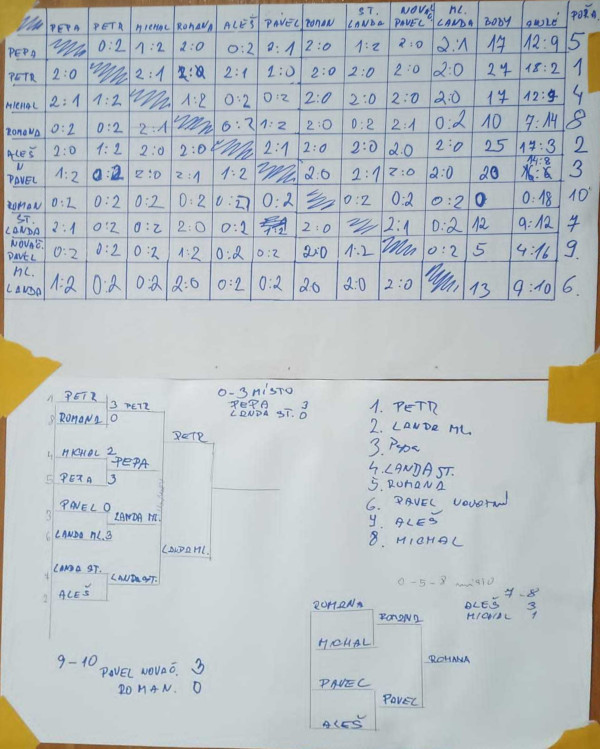 PEPA PETR MICHAL ROMANA ALEŠ PAVEL ROMAN ST. LANDA NOVÁČ PAVEL ML. LANDA BODY POŘA.
PEPA 0:2 1:2 2:0 0:2 2:0 1:2 2:0 2:1 17 12:9 5
PETR 2:0 2:1 2:1 2:0 2:0 2:0 2:0 2:0 27 18:2 1
MICHAL 2:1 1:2 1:2 0:2 0:2 2:0 2:0 2:0 2:0 17 4
ROMANA 0:2 0:2 2:1 0:2 1:2 2:0 0:2 2:1 0:2 10 7:14 8
ALEŠ 2:0 1:2 2:0 2:0 2:1 2:0 2:0 2:0 2:0 25 17:3 2
N
PAVEL 1:2 0:2 2:0 2:1 1:2 2:0 2:1 2:0 2:0 20 14:8 3
ROMAN 0:2 0:2 0:2 0:2 0:2 0:2 0:2 0:2 0 0:18 10
ST. LANDA 2:1 0:2 0:2 2:0 0:2 1:2 2:0 2:1 0:2 12 9:12 7
NOVÁČ. PAVEL 0:2 0:2 0:2 1:2 0:2 0:2 2:0 1:2 0:2 5 4:16 9.
ML. LANDA 1:2 0:2 0:2 2:0 0:2 0:2 2:0 2:0 2:0 13 9:10 6.
0-3 MÍSTO
PEPA 3
LANDA ST. 0
1 PETR 3 PETR
8 ROMANA 0
PETR
4 MICHAL 2
PEPA
5 PEPA 3
3 PAVEL 0
LANDA ML.
6 LANDA ML. 3
LANDA ML.
7 LANDA ST.
LANDA ST.
2 ALEŠ
9-10
PAVEL NOVÁČ. 3
ROMAN. 0
1. PETR
2. LANDA ML.
3. Pepa
4. LANDA ST.
5. ROMANA
6. PAVEL
7. ALEŠ
8. MICHAL
0-5-8 místo
7-8
ALEŠ 3
MICHAL 1
ROMANA
ROMANA
MICHAL
ROMANA
PAVEL
PAVEL
ALEŠ